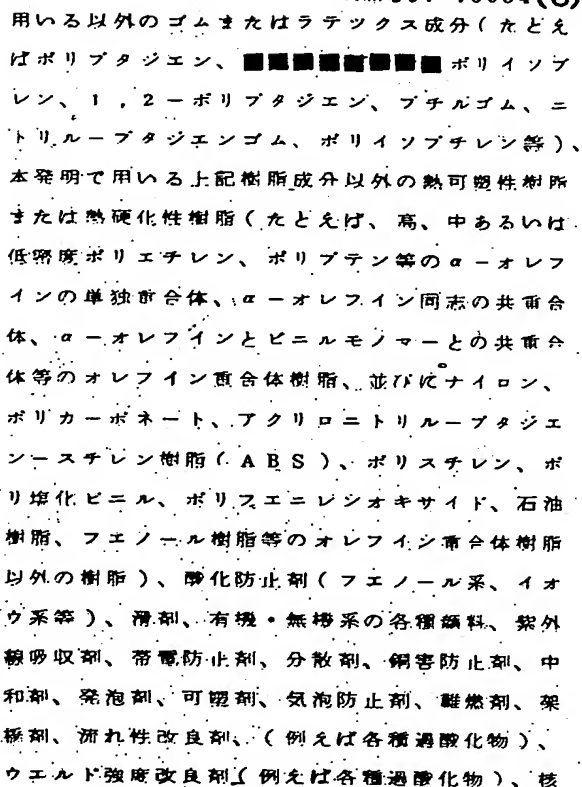 用いる以外のゴムまたはラテックス成分(たとえ
ばポリブタジエン、ポリイソプ
レン、1,2-ポリブタジエン、ブチルゴム、ニ
トリル-ブタジエンゴム、ポリイソブチレン等)、
本発明で用いる上記樹脂成分以外の熱可塑性樹脂
または熱硬化性樹脂(たとえば、高、中あるいは
低密度ポリエチレン、ポリブテン等のα-オレフ
インの単独重合体、α-オレフイン同志の共重合
体、α-オレフインとビニルモノマーとの共重合
体等のオレフイン重合体樹脂、並びにナイロン、
ポリカーボネート、アクリロニトリル-ブタジエ
ン-スチレン樹脂(ABS)、ポリスチレン、ポ
リ塩化ビニル、ポリフエニレンオキサイド、石油
樹脂、フエノール樹脂等のオレフイン重合体樹脂
以外の樹脂)、酸化防止剤(フエノール系、イオ
ウ系等)、滑剤、有機・無機系の各種顔料、紫外
線吸収剤、帯電防止剤、分散剤、銅害防止剤、中
和剤、発泡剤、可塑剤、気泡防止剤、難燃剤、架
橋剤、流れ性改良剤、(例えば各種過酸化物)、
ウエルド強度改良剤(例えば各種過酸化物)、核